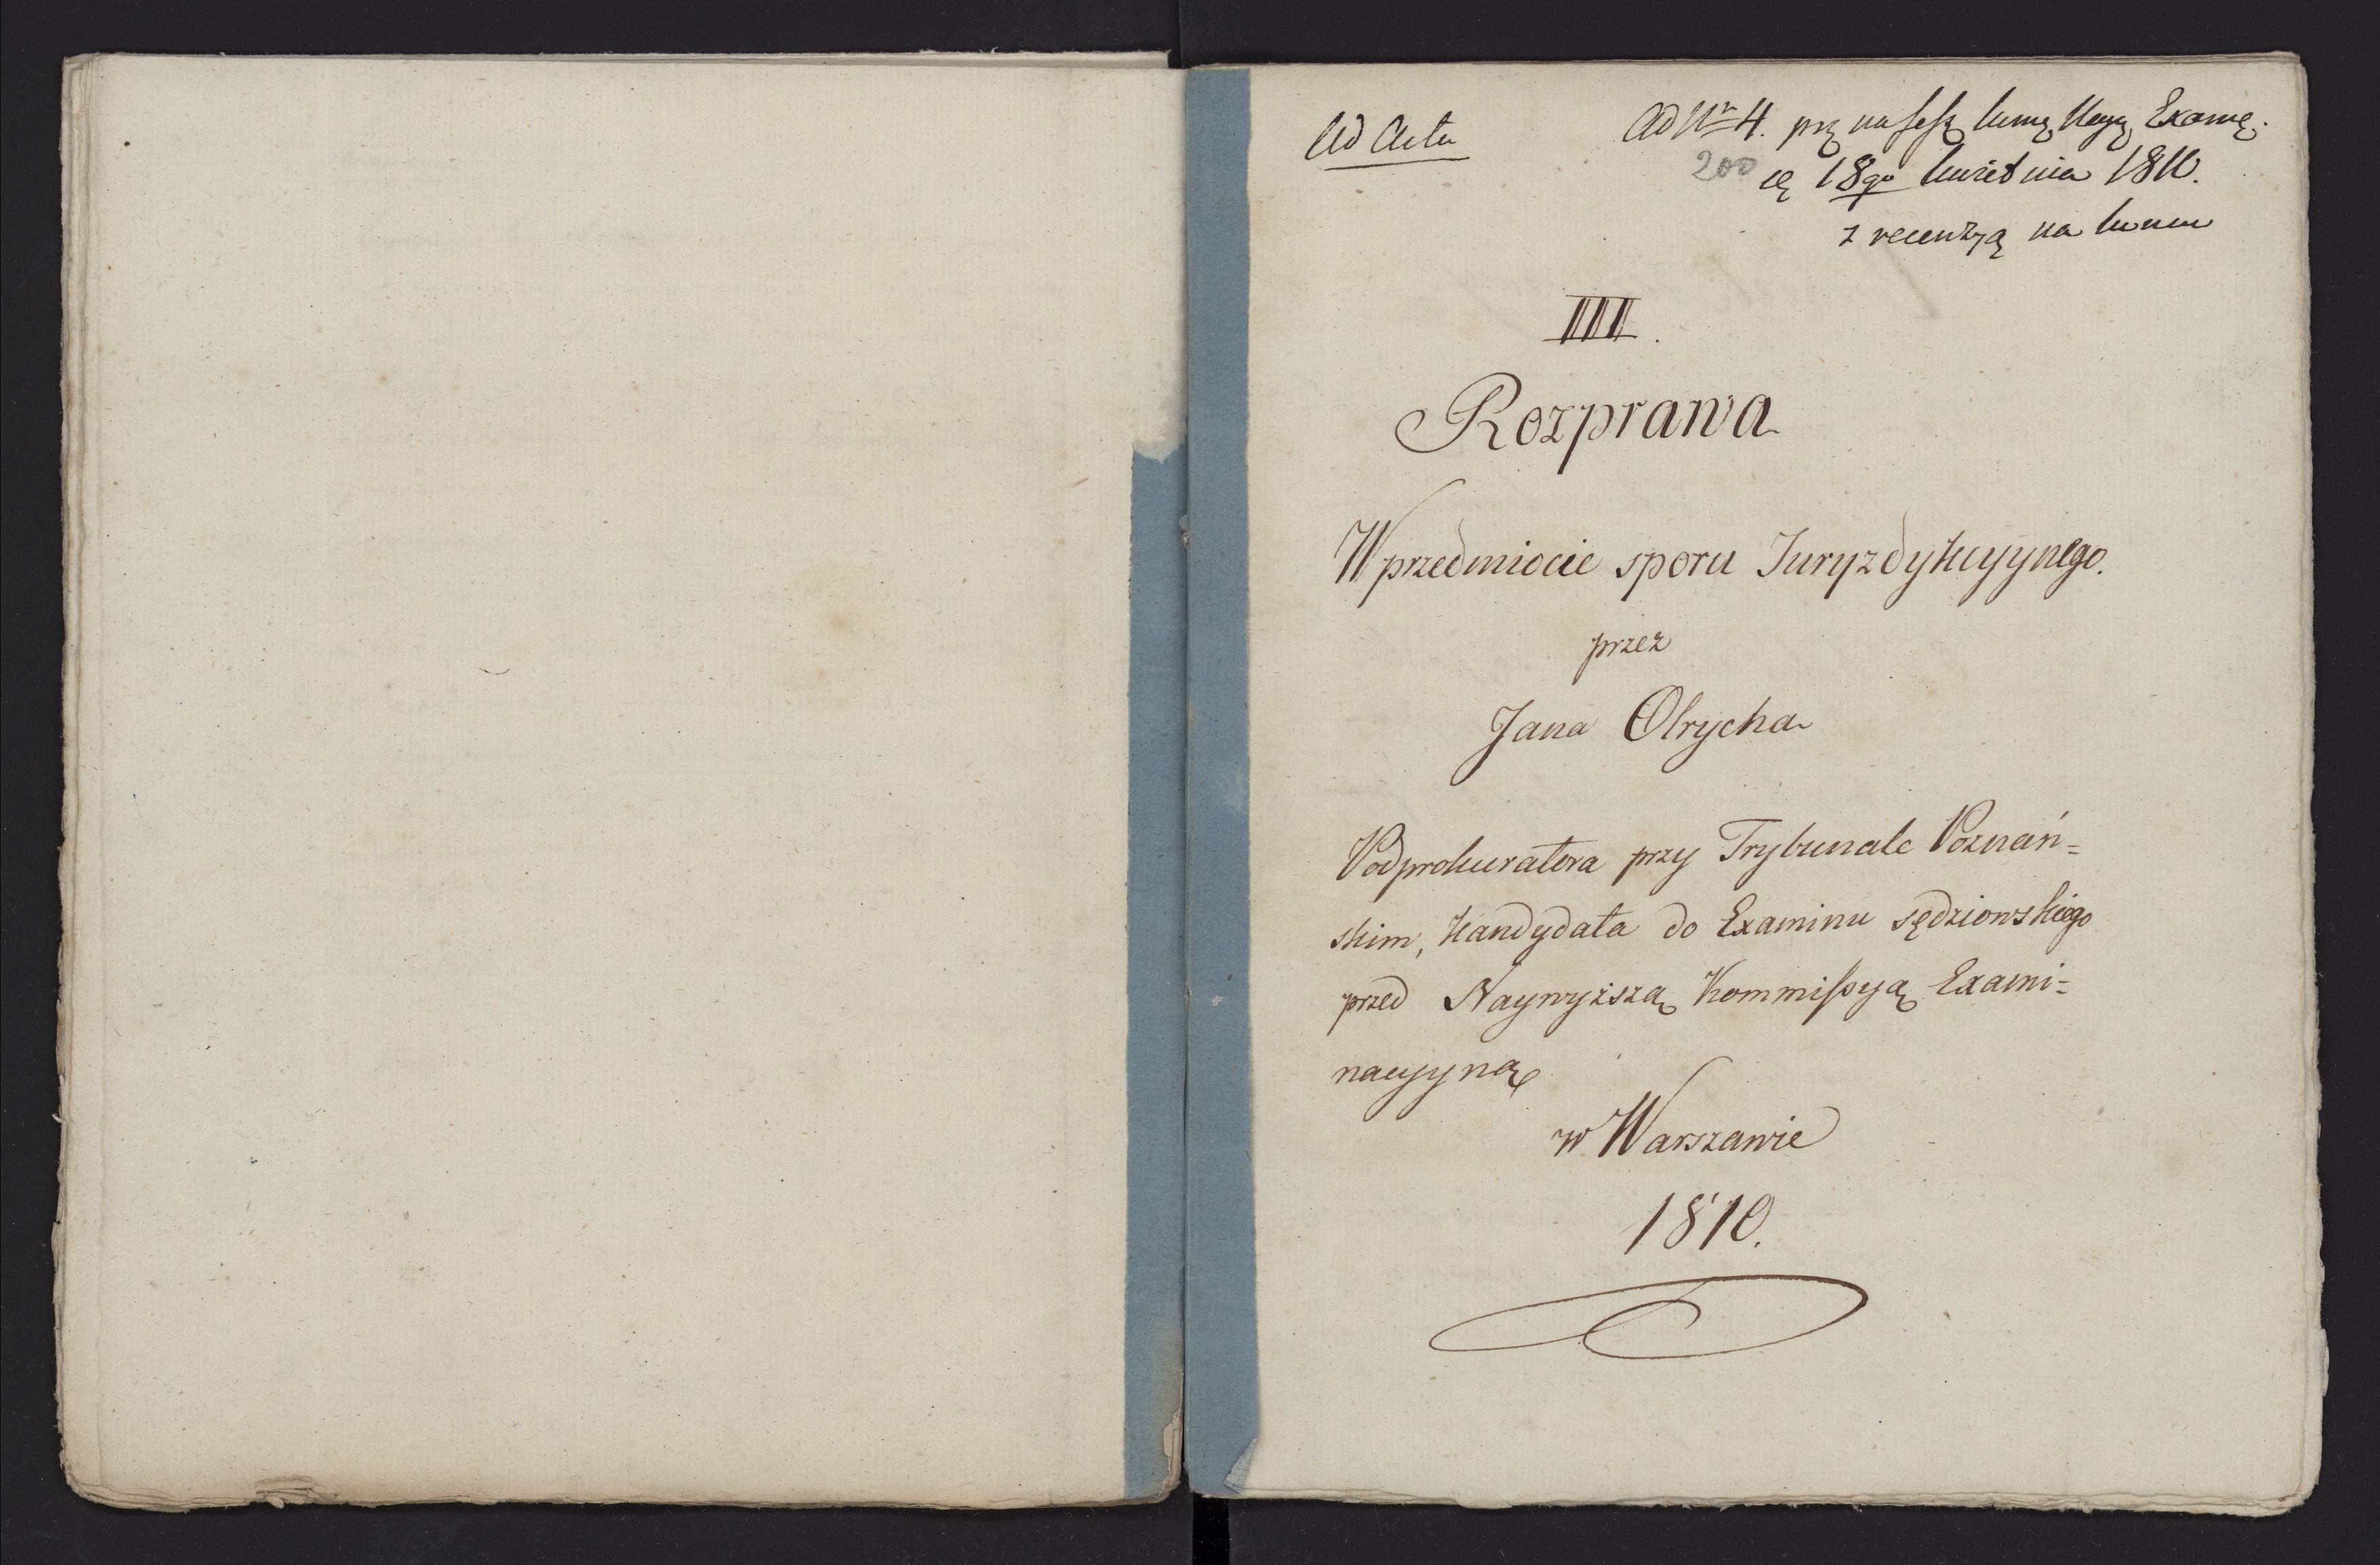 Ad Acta
Ad Nr 4. na Examę.
200
18go kwietnia 1810.
z recenzyą na
IIII.
Rozprawa
W przedmiocie sporu Juryzdykcyynego.
przez
Jana Olrycha
Podprokuratora przy Trybunale Poznań=
skim, Kandydata do Examinu sędziowskiego
przed Naywyższą Kommissyą Exami=
nacyyną
w Warszawie
1810.